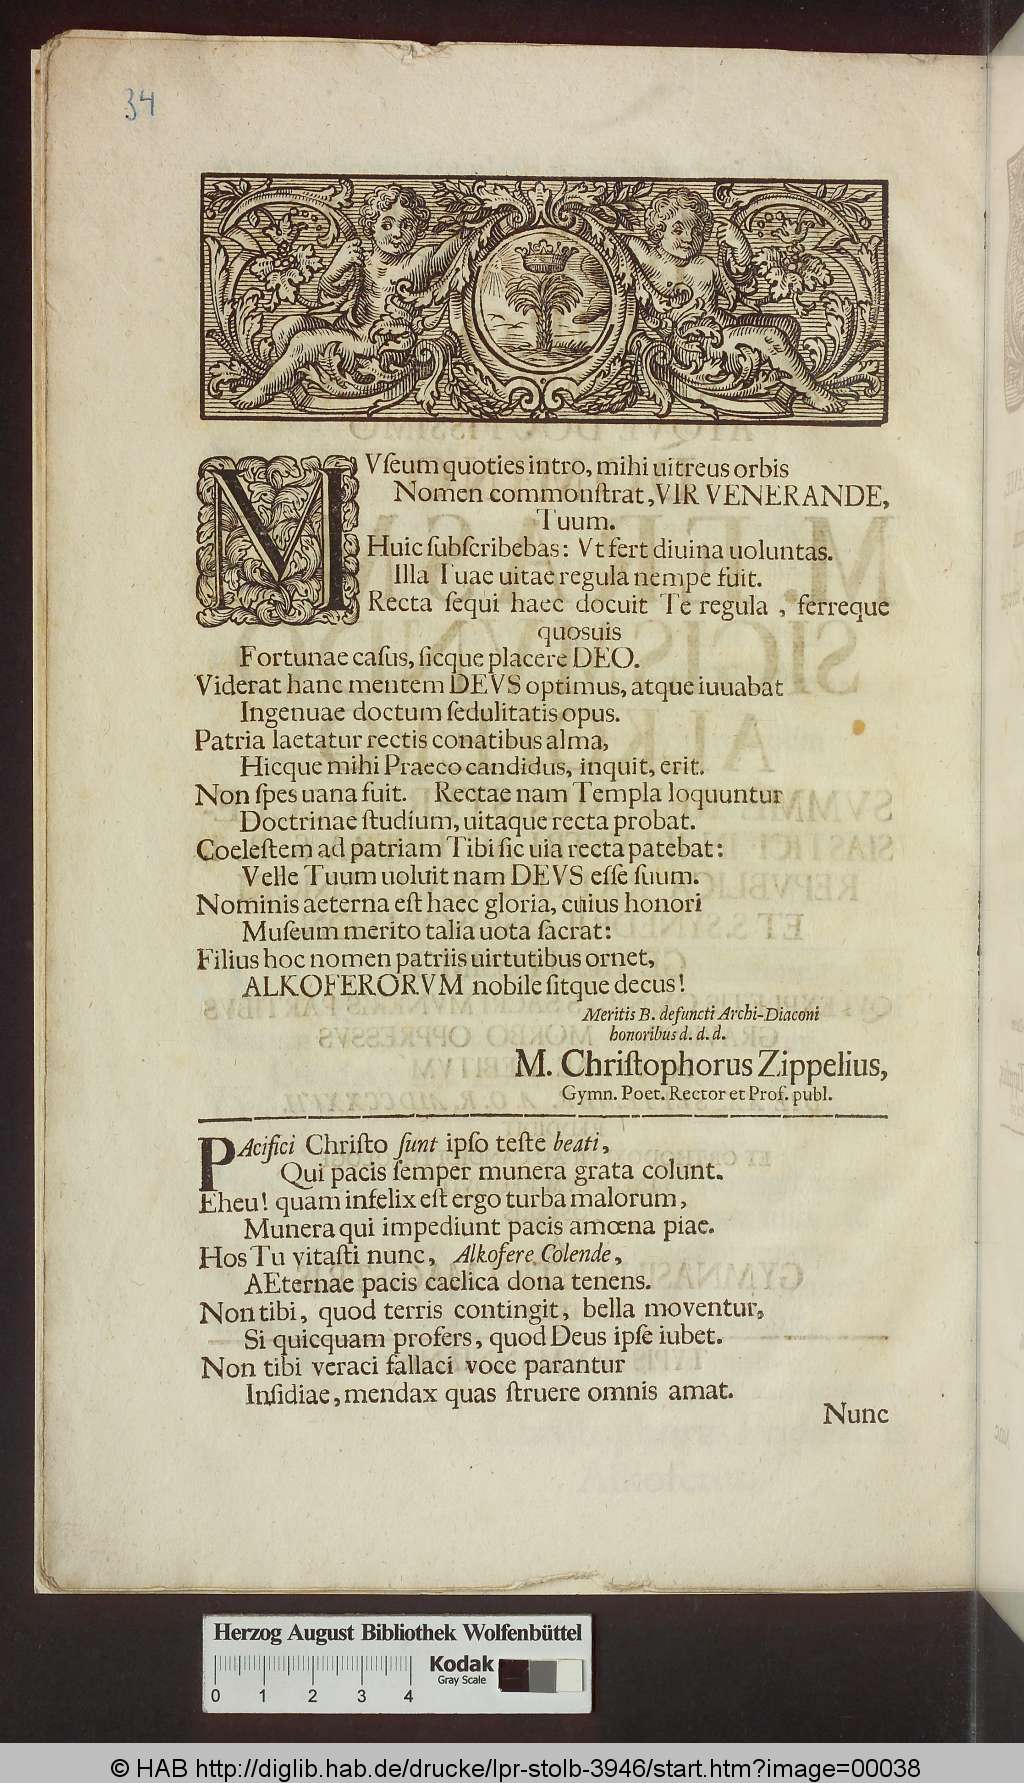 34
MVſeum quoties intro, mihi uitreus orbis
Nomen commonſtrat, VIR VENERANDE,
Tuum.
Huic ſubſcribebas: Vt fert diuina uoluntas.
Illa Tuae uitae regula nempe fuit.
Recta ſequi haec docuit Te regula, ferreque
quosuis
Fortunae caſus, ſicque placere DEO.
Viderat hanc mentem DEVS optimus, atque iuuabat
Ingenuae doctum ſedulitatis opus.
Patria laetatur rectis conatibus alma,
Hicque mihi Praeco candidus, inquit, erit.
Non ſpes uana fuit. Rectae nam Templa loquuntur
Doctrinae ſtudium, uitaque recta probat.
Coeleſtem ad patriam Tibi ſic uia recta patebat:
Velle Tuum uoluit nam DEVS eſſe ſuum.
Nominis aeterna eſt haec gloria, cuius honori
Muſeum merito talia uota ſacrat:
Filius hoc nomen patriis uirtutibus ornet,
ALKOFERORVM nobile ſitque decus!
Meritis B. defuncti Archi-Diaconi
honoribus d. d. d.
M. Chriſtophorus Zippelius,
Gymn. Poet. Rector et Prof. publ.
PAcifici Chriſto ſunt ipſo teſte beati,
Qui pacis ſemper munera grata colunt.
Eheu! quam infelix eſt ergo turba malorum,
Munera qui impediunt pacis amœna piae.
Hos Tu vitaſti nunc, Alkofere Colende,
AEternae pacis caelica dona tenens.
Non tibi, quod terris contingit, bella moventur,
Si quicquam profers, quod Deus ipſe iubet.
Non tibi veraci fallaci voce parantur
Inſidiae, mendax quas ſtruere omnis amat.
Nunc
Herzog August Bibliothek Wolfenbüttel
Kodak
Gray Scale
0 1 2 3 4
© HAB http://diglib.hab.de/drucke/lpr-stolb-3946/start.htm?image=00038